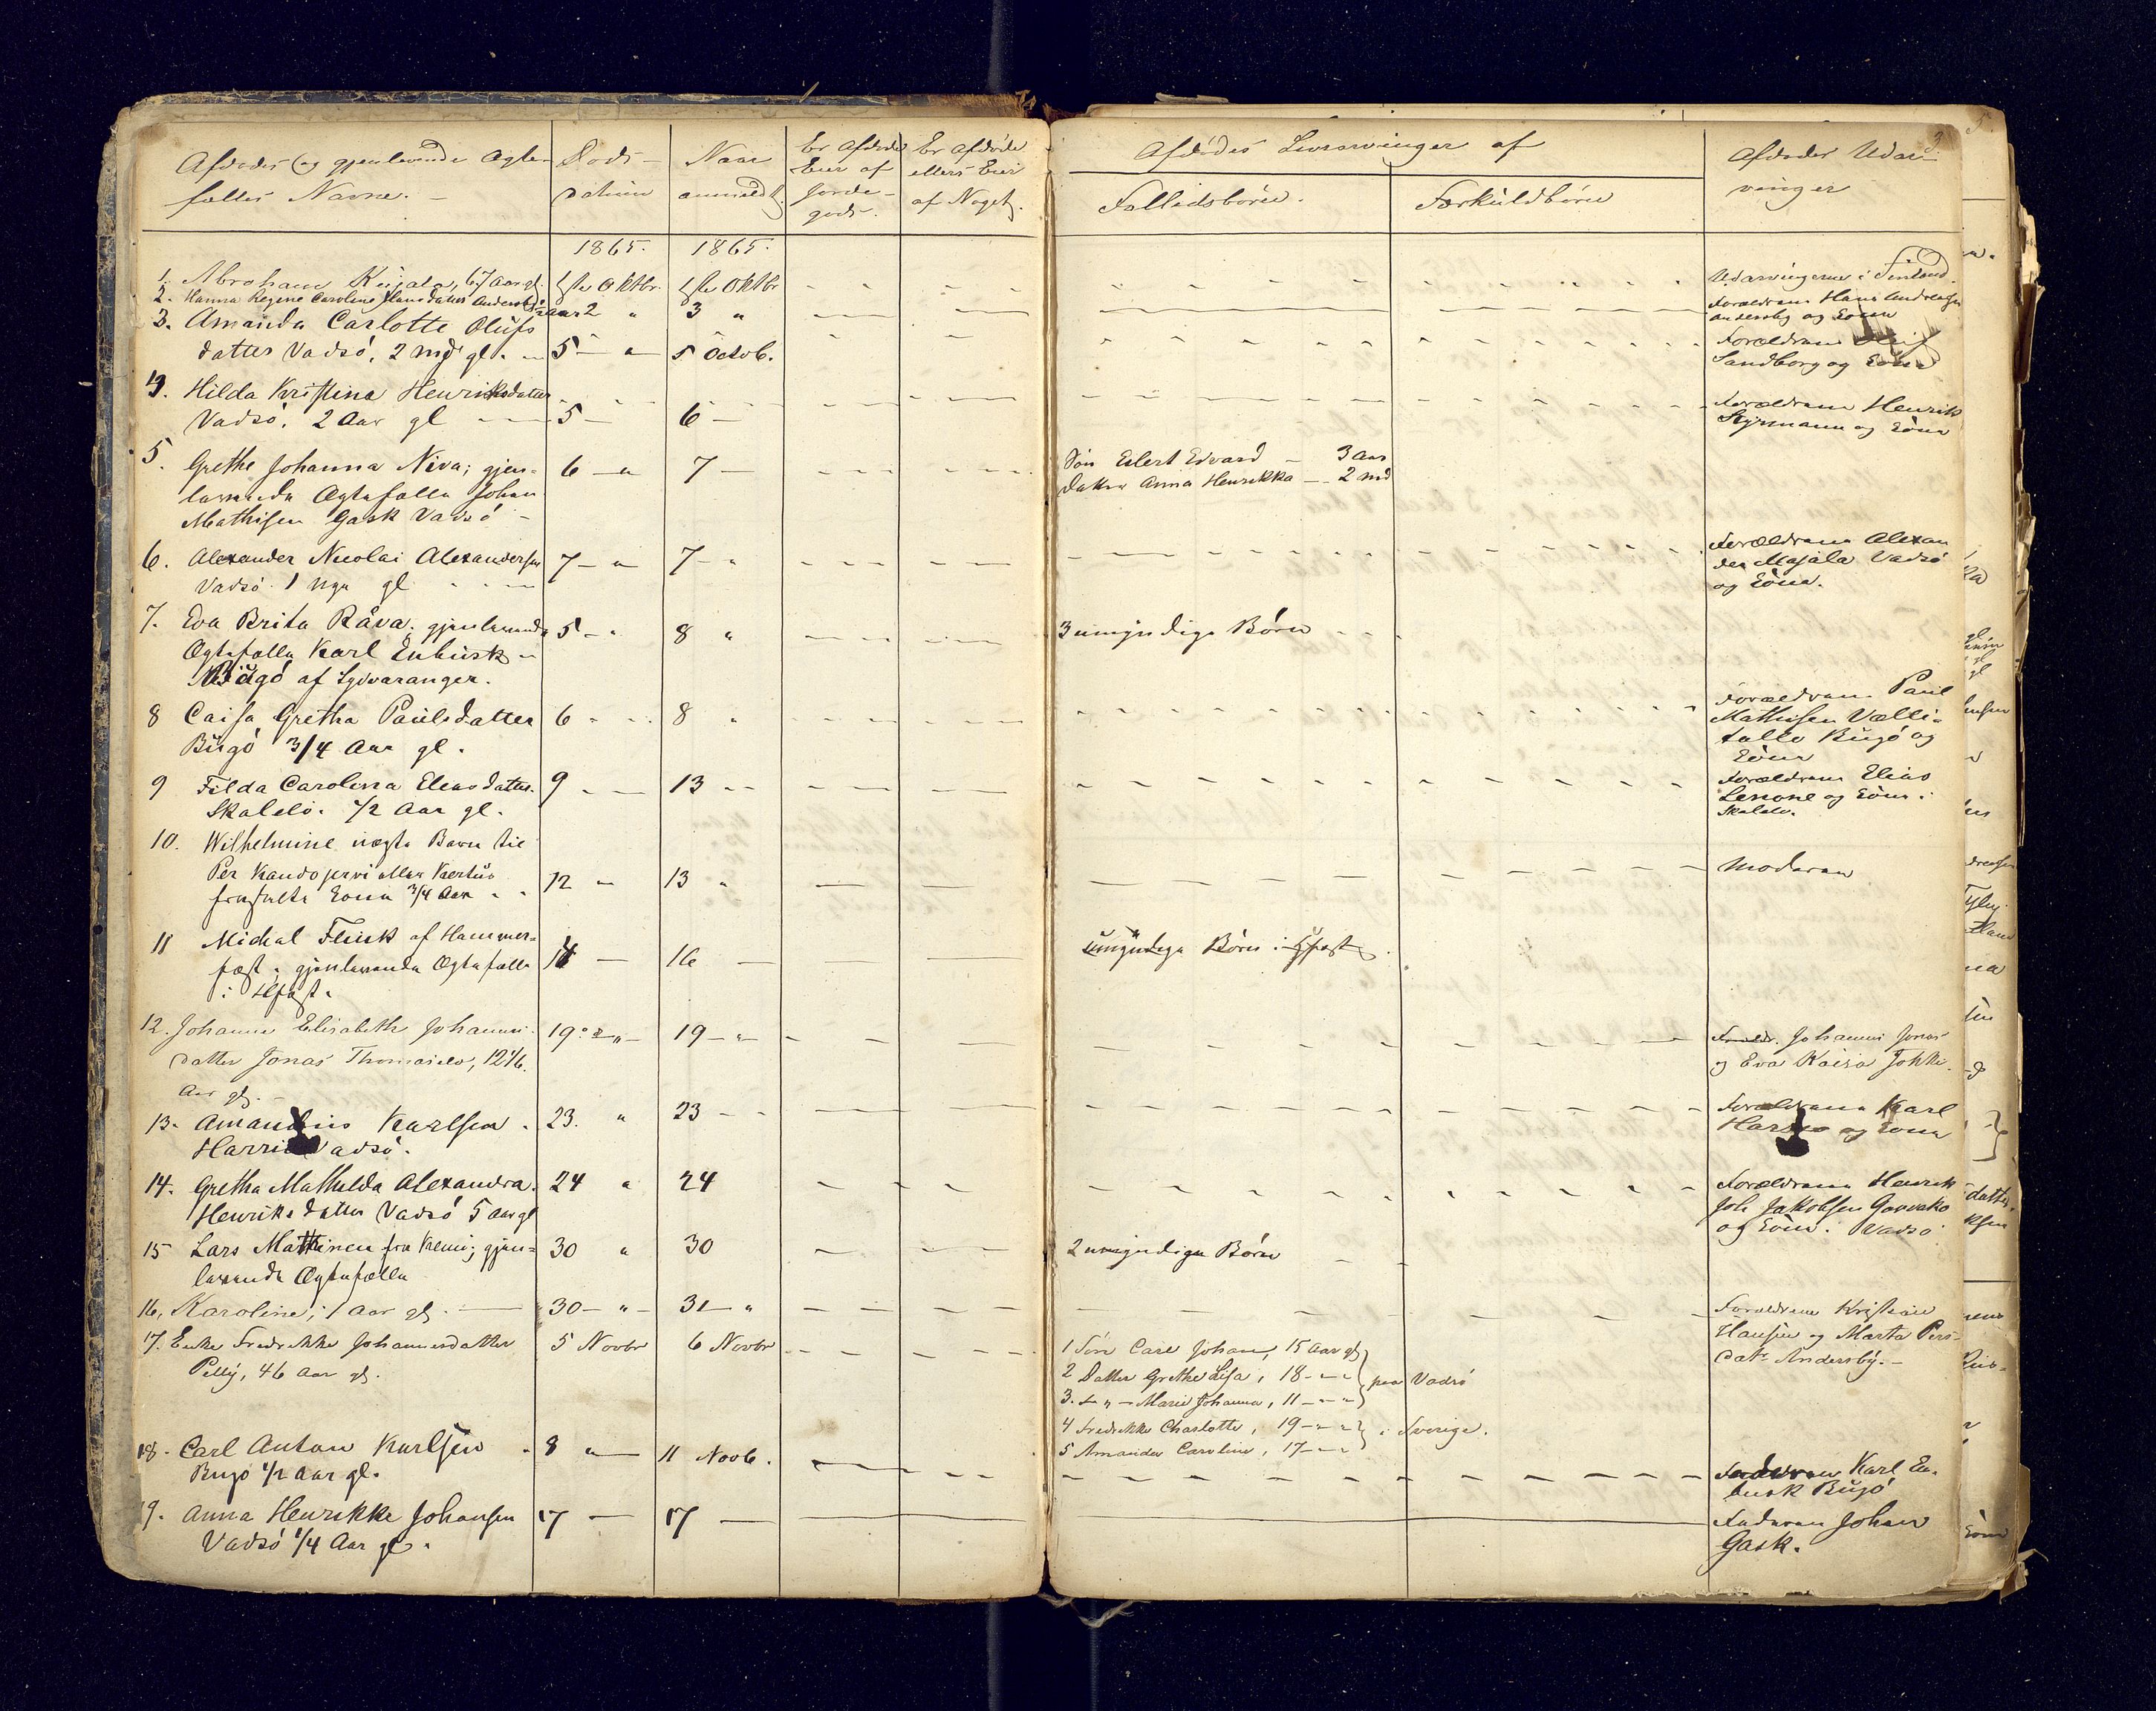 3.
Afdødes og gjenlevende Ægte-
fælles Navne. —
Døds-
datum
Naar
anmeldt.
Er Afdøde
Eier af
Jorde-
gods.
Er Afdøde
ellers Eier
af Noget.
Afdødes Livsarvinger af
Fællidsbørn.
Særkuldbørn
Afdødes Udar-
vinger
1865. 1865.
1. Abraham Kujala, 67 aar gl. 1ste Oktbr. 1ste Oktbr Udarvingerne i Finland.
2. Hanna Regine Caroline Hansdatter Andersby 2 " 3 " Forældrene Hans Andreasen
Andersby og Kone
3. Amanda Carlotte Olufs
datter Vadsö, 2 md gl. — 5 — " 5 Octob. Forældrene
Sandborg og Kone
4. Hilda Kristina Henriksdatter
Vadsö. 2 Aar gl 5 — 6 — Forældrene Henrik
Styrmann og Kone
5. Grethe Johanna Niva; gjen- 6 — " 7 — Sön Eilert Edvard — 3 Aar
levende Ægtefælle Johan Datter Anna Henrikka — 2 md
Mathisen Gask Vadsö —
6. Alexander Nicolai Alexandersen 7 — " 7 — " Forældrene Alexan
Vadsö. 1 uge gl der Majala Vadsö
og Kone.
7. Eva Brita Råva; gjenlevende 5 — " 8 " 3 umyndige Börn
Ægtefælle Karl Enbusk —
Bugö af Sydvaranger.
8 Caisa Gretha Paulsdatter 6 " 8 " Forældrene Paul
Bugö 3/4 Aar gl. Mathisen Vælli-
talo Bugö og
Kone
9 Filda Carolina Eliasdatter. 9 — 13 Forældrene Elias
Skalelv. 1/2 Aar gl. og Kone.
Skalelv.
10. Wilhelmine uægte Barn til
Per
Kone 3/4 Aar 12 " 13 " Moderen
11 Michal Flink af Hammer-
fest; gjenlevende Ægtefælle 14 — 16 — umyndige Børn i Hfest.
i Hfest.
12. Johanne Elisabeth Johanns- 19 " 19 — " — Johannes Jonas
datter Jonas Thomaselv, 12 1/6. og Eva Kaisa Johke.
Aar gl. —
13. Amandus Karlsen 23. " 23 Forældrene Karl
Harri Vadsö. og Kone
14. Gretha Mathilda Alexandra 24 " 24 Forældrene Henrik
Henriksdatter Vadsö 5 aar gl Joh Jakobsen
og Kone. Vadsö
15 Lars Mathinen fra Kemi; gjen- 30 " 30 2 umyndige Börn
levende Ægtefælle
16. Karoline, 1 aar gl. 30 — " — 31 — " Forældrene Kristian
Hansen og Marta Pers-
datr Andersby. —
17. Enke Fredrikke Johannesdatter 5 Novbr 6 Novbr
Pelly, 46 aar gl.
1 Sön Carl Johan, 15 aar gl
2 Datter Grethe Lisa, 18 — " — " paa Vadsö
3. — " — Marie Johanna, 11 — " — "
4 Fredrikke Charlotte, 19 — " — " i Sverige.
5 Amanda Caroline, 17 — " — "
18. Carl Anton Karlsen 8 " 11 Novb. Faderen Karl En-
Bugö 1/2 Aar gl. busk Bugö
19. Anna Henrikke Johansen 17 — 17 — Faderen Johan
Vadsö 1/4 Aar gl. Gask.